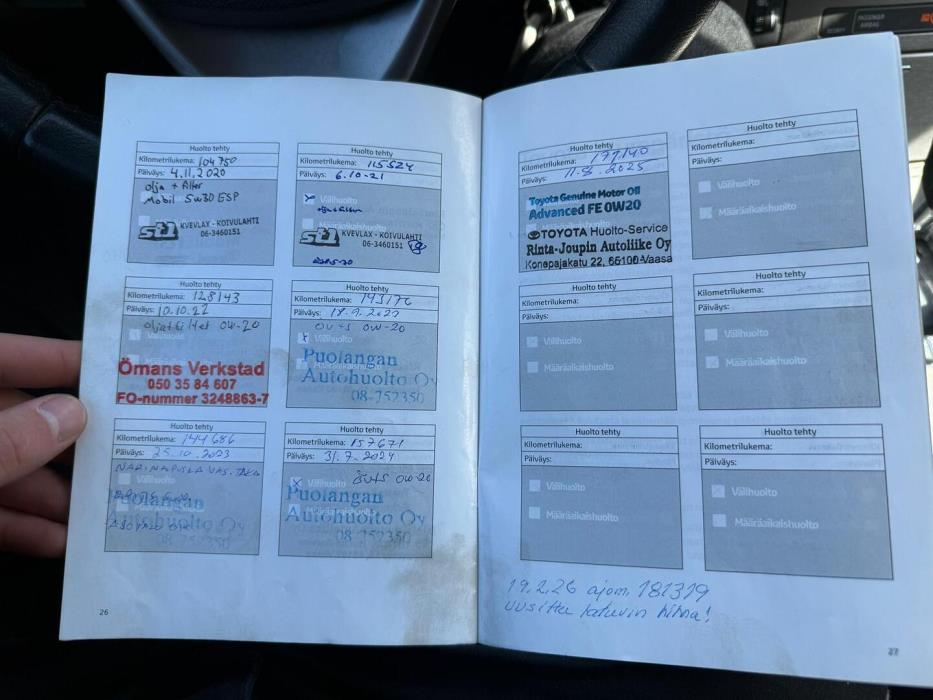 PASSENGER
AIRBAG
Huolto tehty
Kilometrilukema: 104 750
Päiväys: 4.11.2020
olja + filter
Mobil 5w30 ESP
stl KVEVLAX - KOIVULAHTI
06-3460151
Huolto tehty
Kilometrilukema: 115524
Päiväys: 6.10-21
Välihuolto
stl KVEVLAX - KOIVULAHTI
06-3460151
Huolto tehty
Kilometrilukema: 128143
Päiväys: 10.10.22
0W-20
Ömans Verkstad
050 35 84 607
FO-nummer 3248863-7
Huolto tehty
Kilometrilukema: 143176
Päiväys:
0W-20
Välihuolto
Puolangan
Määräaikaishuolto
Autohuolto Oy
08-752350
Huolto tehty
Kilometrilukema: 144686
Päiväys: 25.10.2023
Puolangan
Autohuolto Oy
08-752350
Huolto tehty
Kilometrilukema: 157671
Päiväys: 31.7.2024
0W-20
Välihuolto
Puolangan
Määräaikaishuolto
Autohuolto Oy
08-752350
26
Huolto tehty
Kilometrilukema: 177140
Päiväys: 11.8.2025
Toyota Genuine Motor Oil
Advanced FE 0W20
TOYOTA Huolto-Service
Rinta-Joupin Autoliike Oy
Konepajakatu 22, 65100 Vaasa
Huolto tehty
Kilometrilukema:
Päiväys:
Välihuolto
Määräaikaishuolto
Huolto tehty
Kilometrilukema:
Päiväys:
Välihuolto
Määräaikaishuolto
Huolto tehty
Kilometrilukema:
Päiväys:
Välihuolto
Määräaikaishuolto
Huolto tehty
Kilometrilukema:
Päiväys:
Välihuolto
Määräaikaishuolto
Huolto tehty
Kilometrilukema:
Päiväys:
Välihuolto
Määräaikaishuolto
19.2.26 ajom. 181319
uusittu laturin hihna!
27